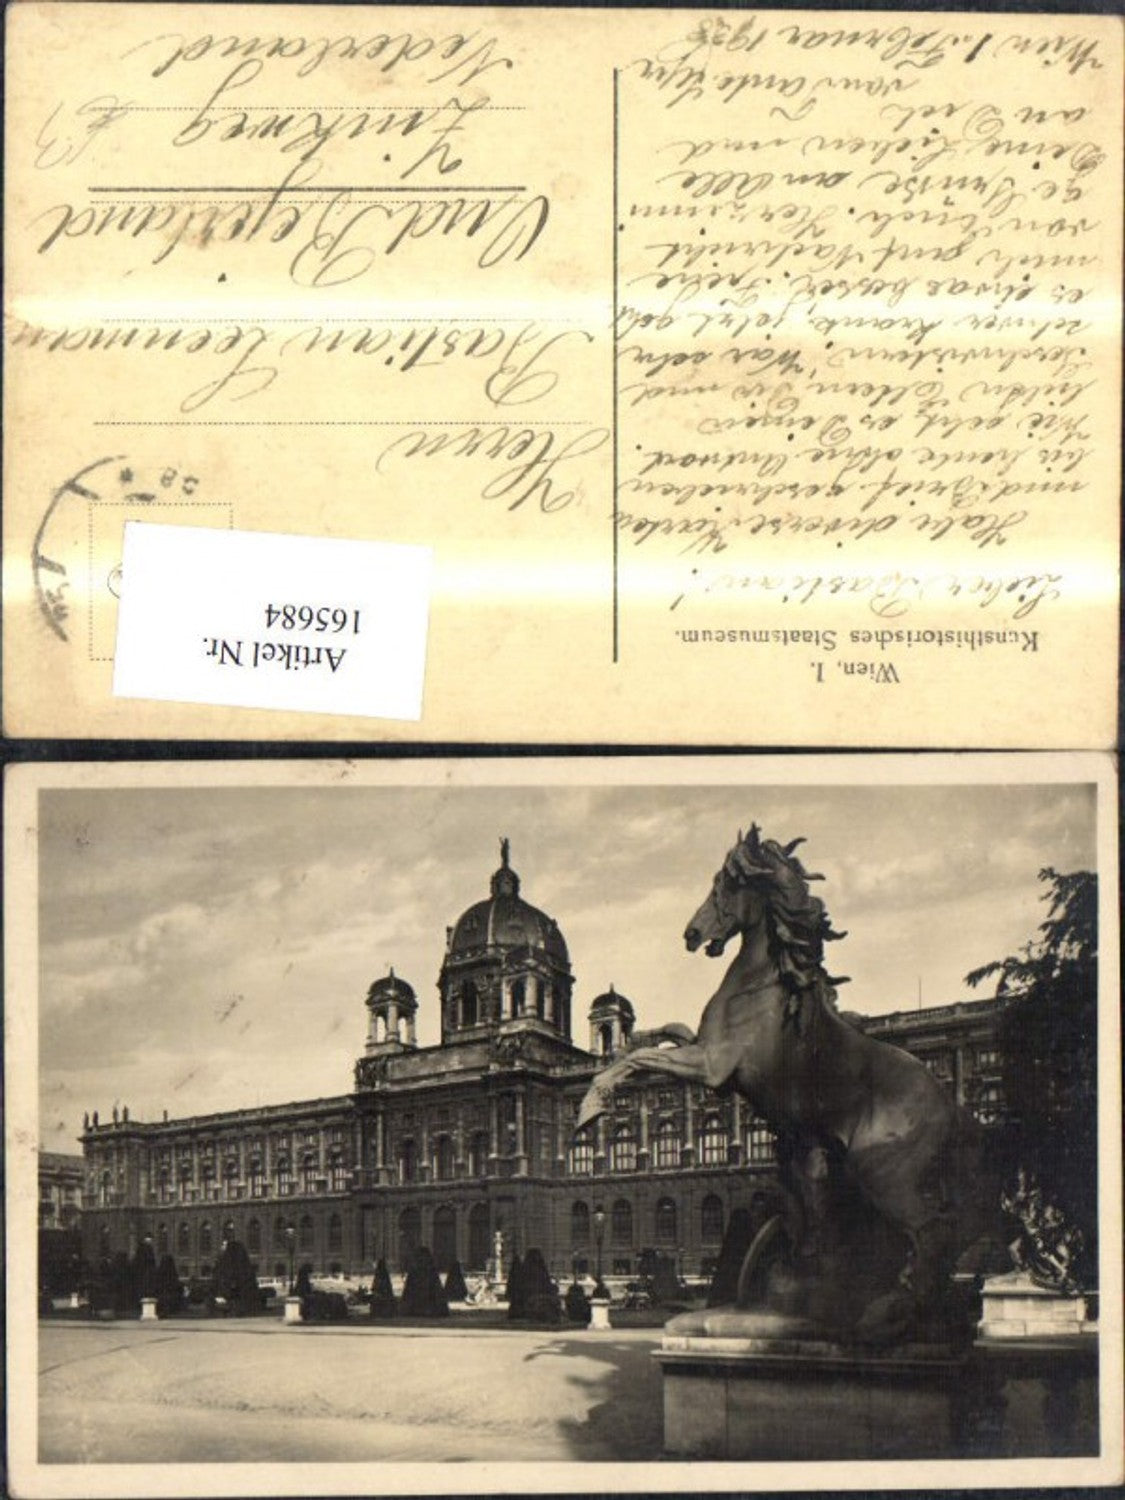 Wien, I.
Kunsthistorisches Staatsmuseum.
Lieber Bastian!
Habe diverse Karten
und Brief geschrieben
bis heute ohne Antwort.
Wie geht es Deinen
lieben Eltern Dir und
Geschwistern. War sehr
schwer krank jetzt geht
es etwas besser. Freue
mich auf Nachricht
von Euch. Herzinni
ge Grüsse an Alle
Deine Lieben und
an Dich
von
Wien 1. Februar 1928
Herrn
Bastian Leenman
Oud Beijerland
Zinkweg
Nederland
Artikel Nr.
165684